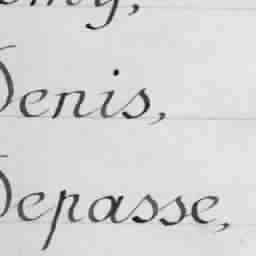 Denis,
Depasse,